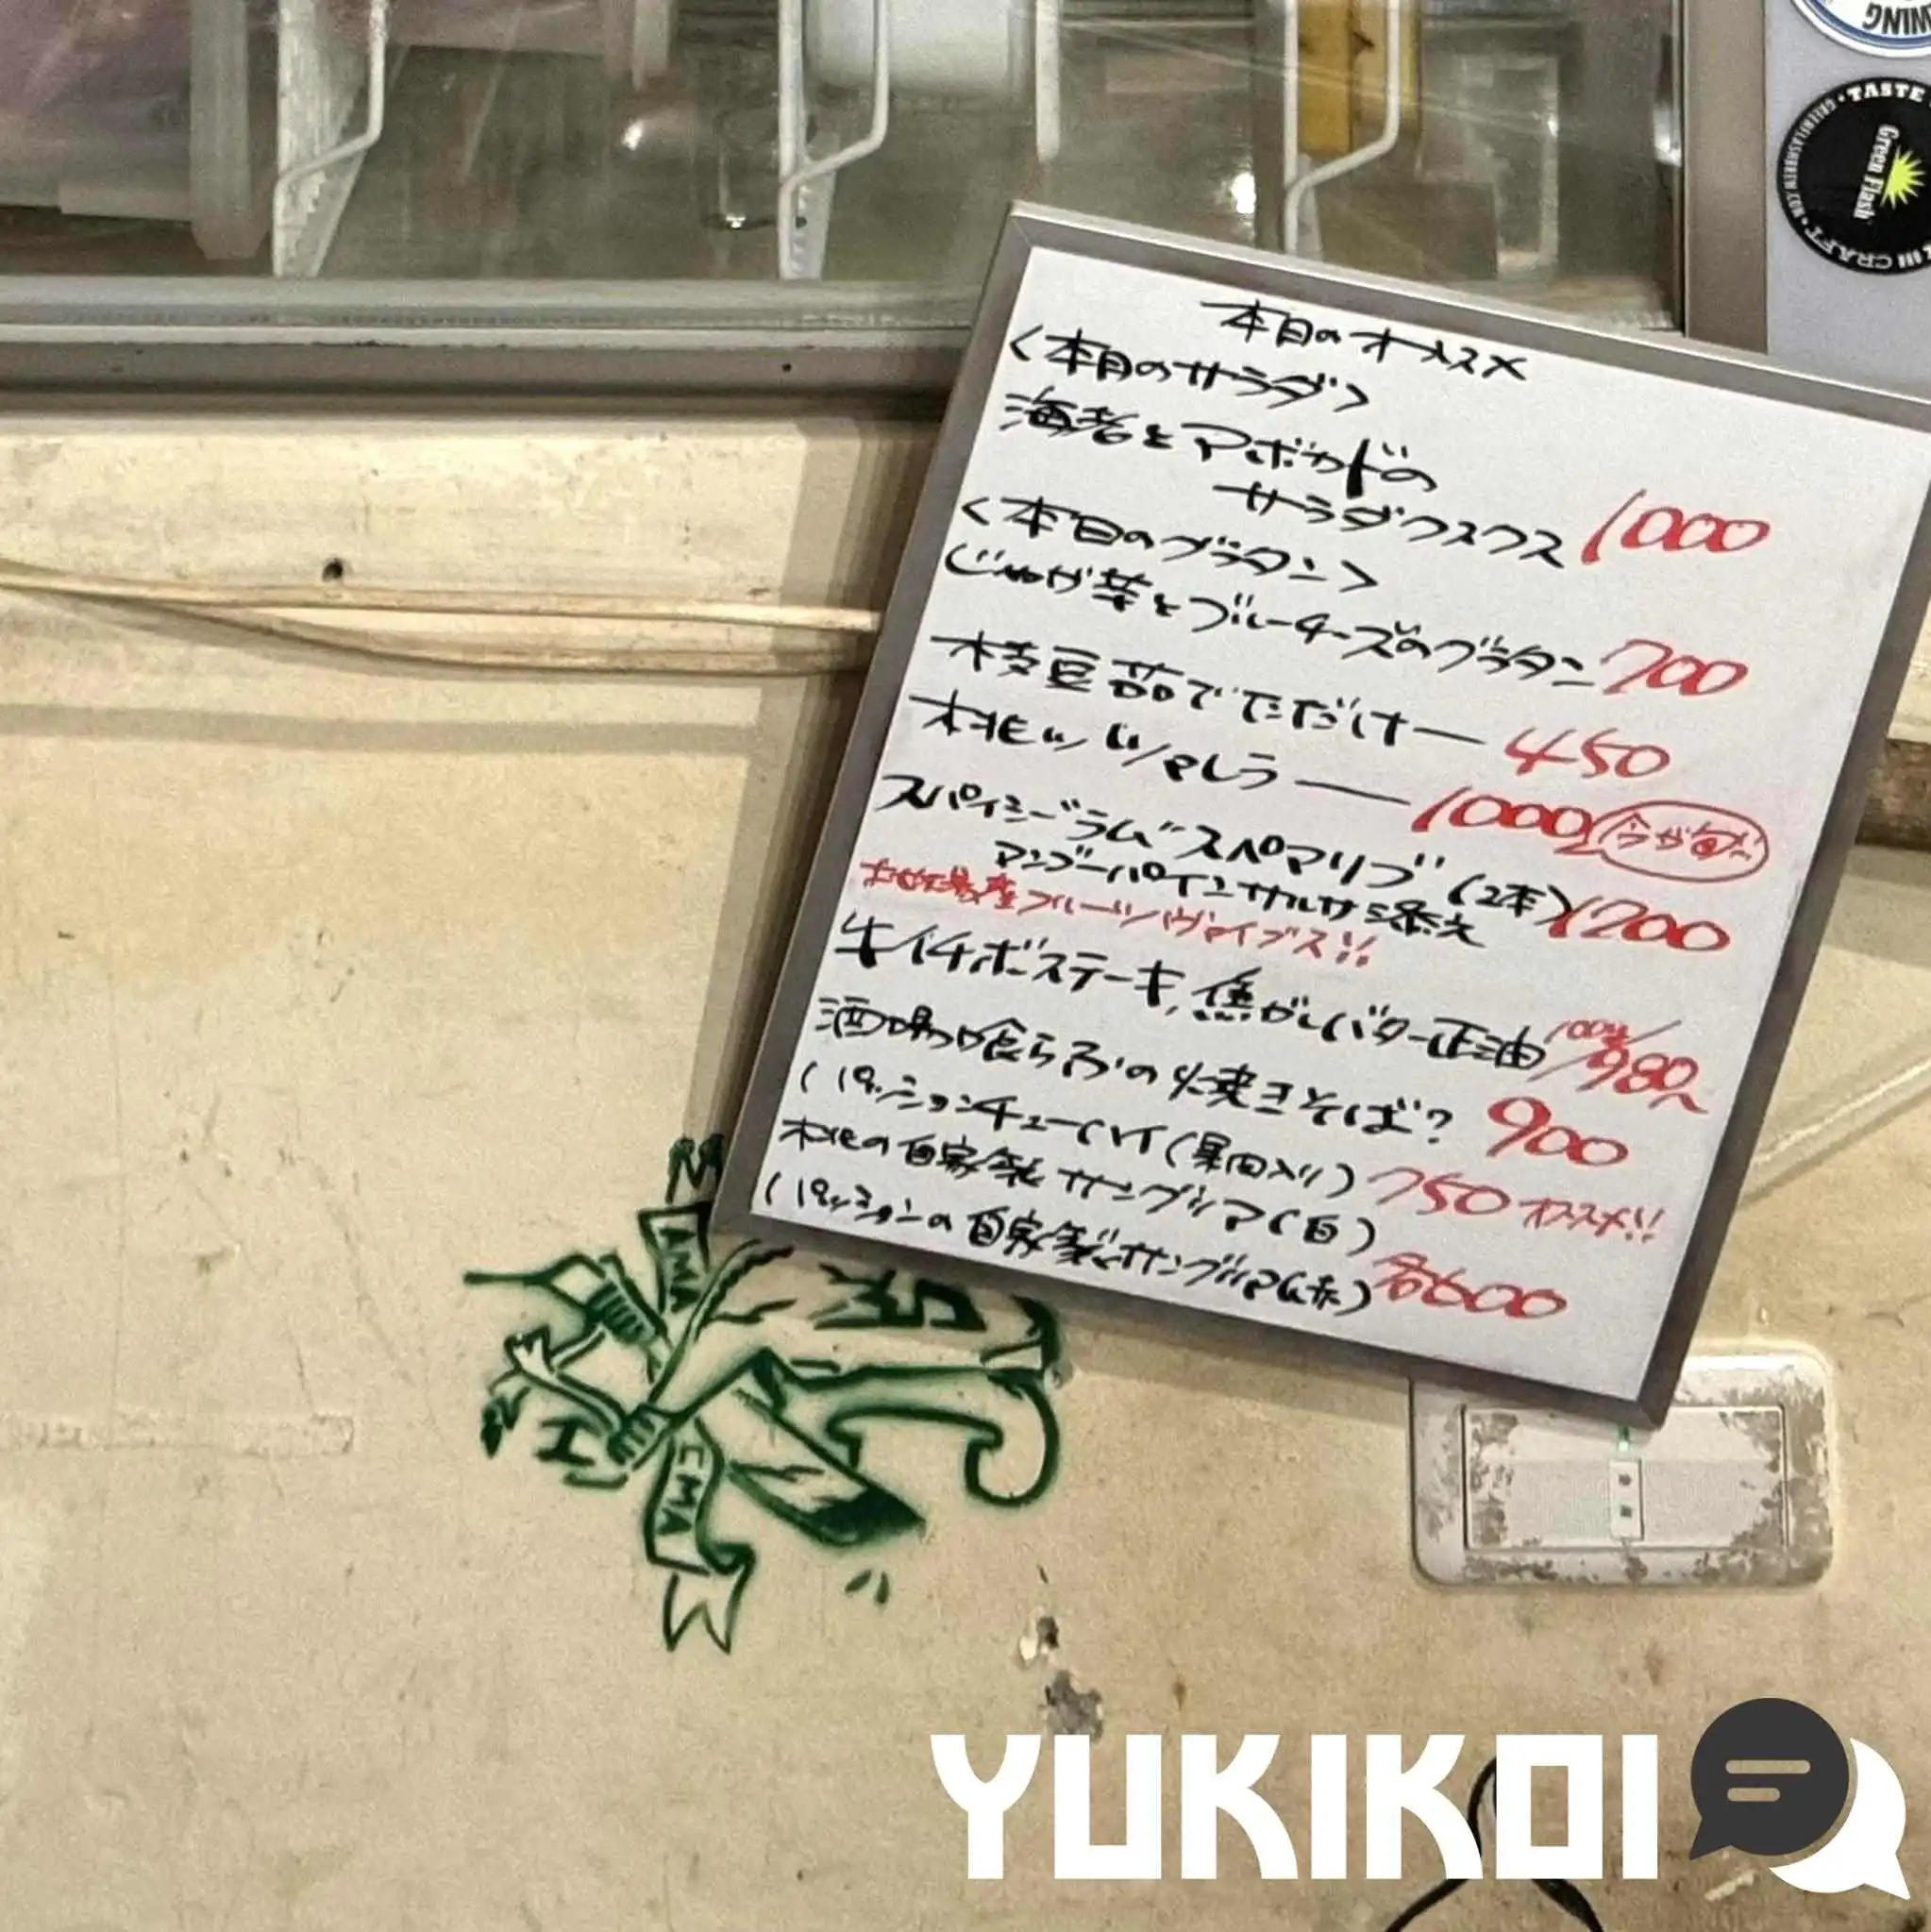 本日のオススメ
<本日のサラダ>
海老とアボカドの
サラダクスクス 1000
<本日のグラタン>
じゃが芋とブルーチーズのグラタン 700
枝豆茹でただけ 450
桃ッツァレラ 1000 今が旬だ
スパイシーラムスペアリブ(2本) 1200
マンゴーパインサルサ添え
フルーツバヴァイブス!!
牛イチボステーキ、焦がしバター正油 100g/980〜
酒場喰らふの焼きそば? 900
(パッションチューハイ(果肉入り) 750 オススメ!!
桃の自家製サングリア(白)
(パッションの自家製サングリア(赤) 各600
TASTE
Green Flash
CRAFT
CMA
YUKIKOI